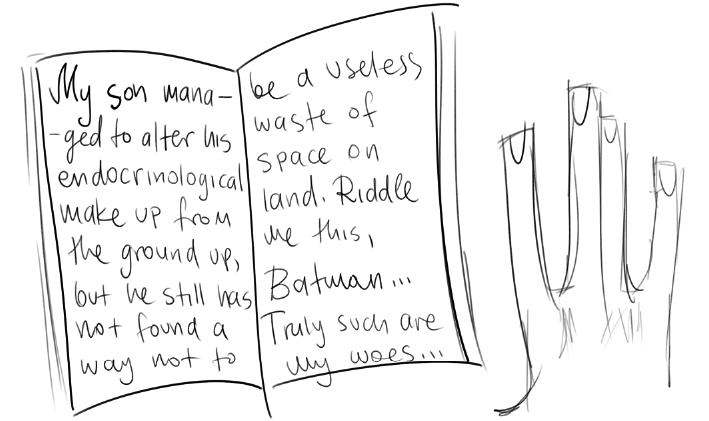 My son mana-
-ged to alter his
endocrinological
make up from
the ground up,
but he still has
not found a
way not to
be a useless
waste of
space on
land. Riddle
me this,
Batman...
Truly such are
my woes...